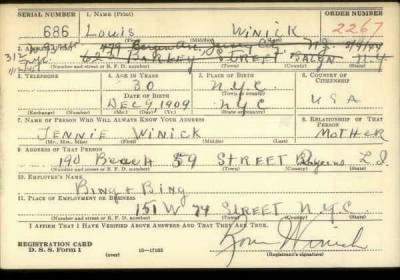 SERIAL NUMBER
1. NAME (Print)
ORDER NUMBER
686
Louis
WINICK
2267
(First) (Middle) (Last)
STREET
N.Y.
(Number and street or R. F. D. number) (Town) (County) (State)
3. TELEPHONE
4. AGE IN YEARS
5. PLACE OF BIRTH
6. COUNTRY OF CITIZENSHIP
30
N.Y.C.
DATE OF BIRTH
(Town or county)
DEC 4 1909
NYC
USA
(Exchange) (Number) (Mo.) (Day) (Yr.) (State or country)
7. NAME OF PERSON WHO WILL ALWAYS KNOW YOUR ADDRESS
8. RELATIONSHIP OF THAT PERSON
JENNIE WINICK
MOTHER
(Mr., Mrs., Miss) (First) (Middle) (Last)
9. ADDRESS OF THAT PERSON
190 Beach 59 STREET L.I.
(Number and street or R. F. D. number) (Town) (County) (State)
10. EMPLOYER'S NAME
Bing & Bing
11. PLACE OF EMPLOYMENT OR BUSINESS
151 W 74 STREET NYC
(Number and street or R. F. D. number) (Town) (County) (State)
I AFFIRM THAT I HAVE VERIFIED ABOVE ANSWERS AND THAT THEY ARE TRUE.
REGISTRATION CARD
D. S. S. FORM 1
(over)
16—17105
Louis Winick
(Registrant's signature)